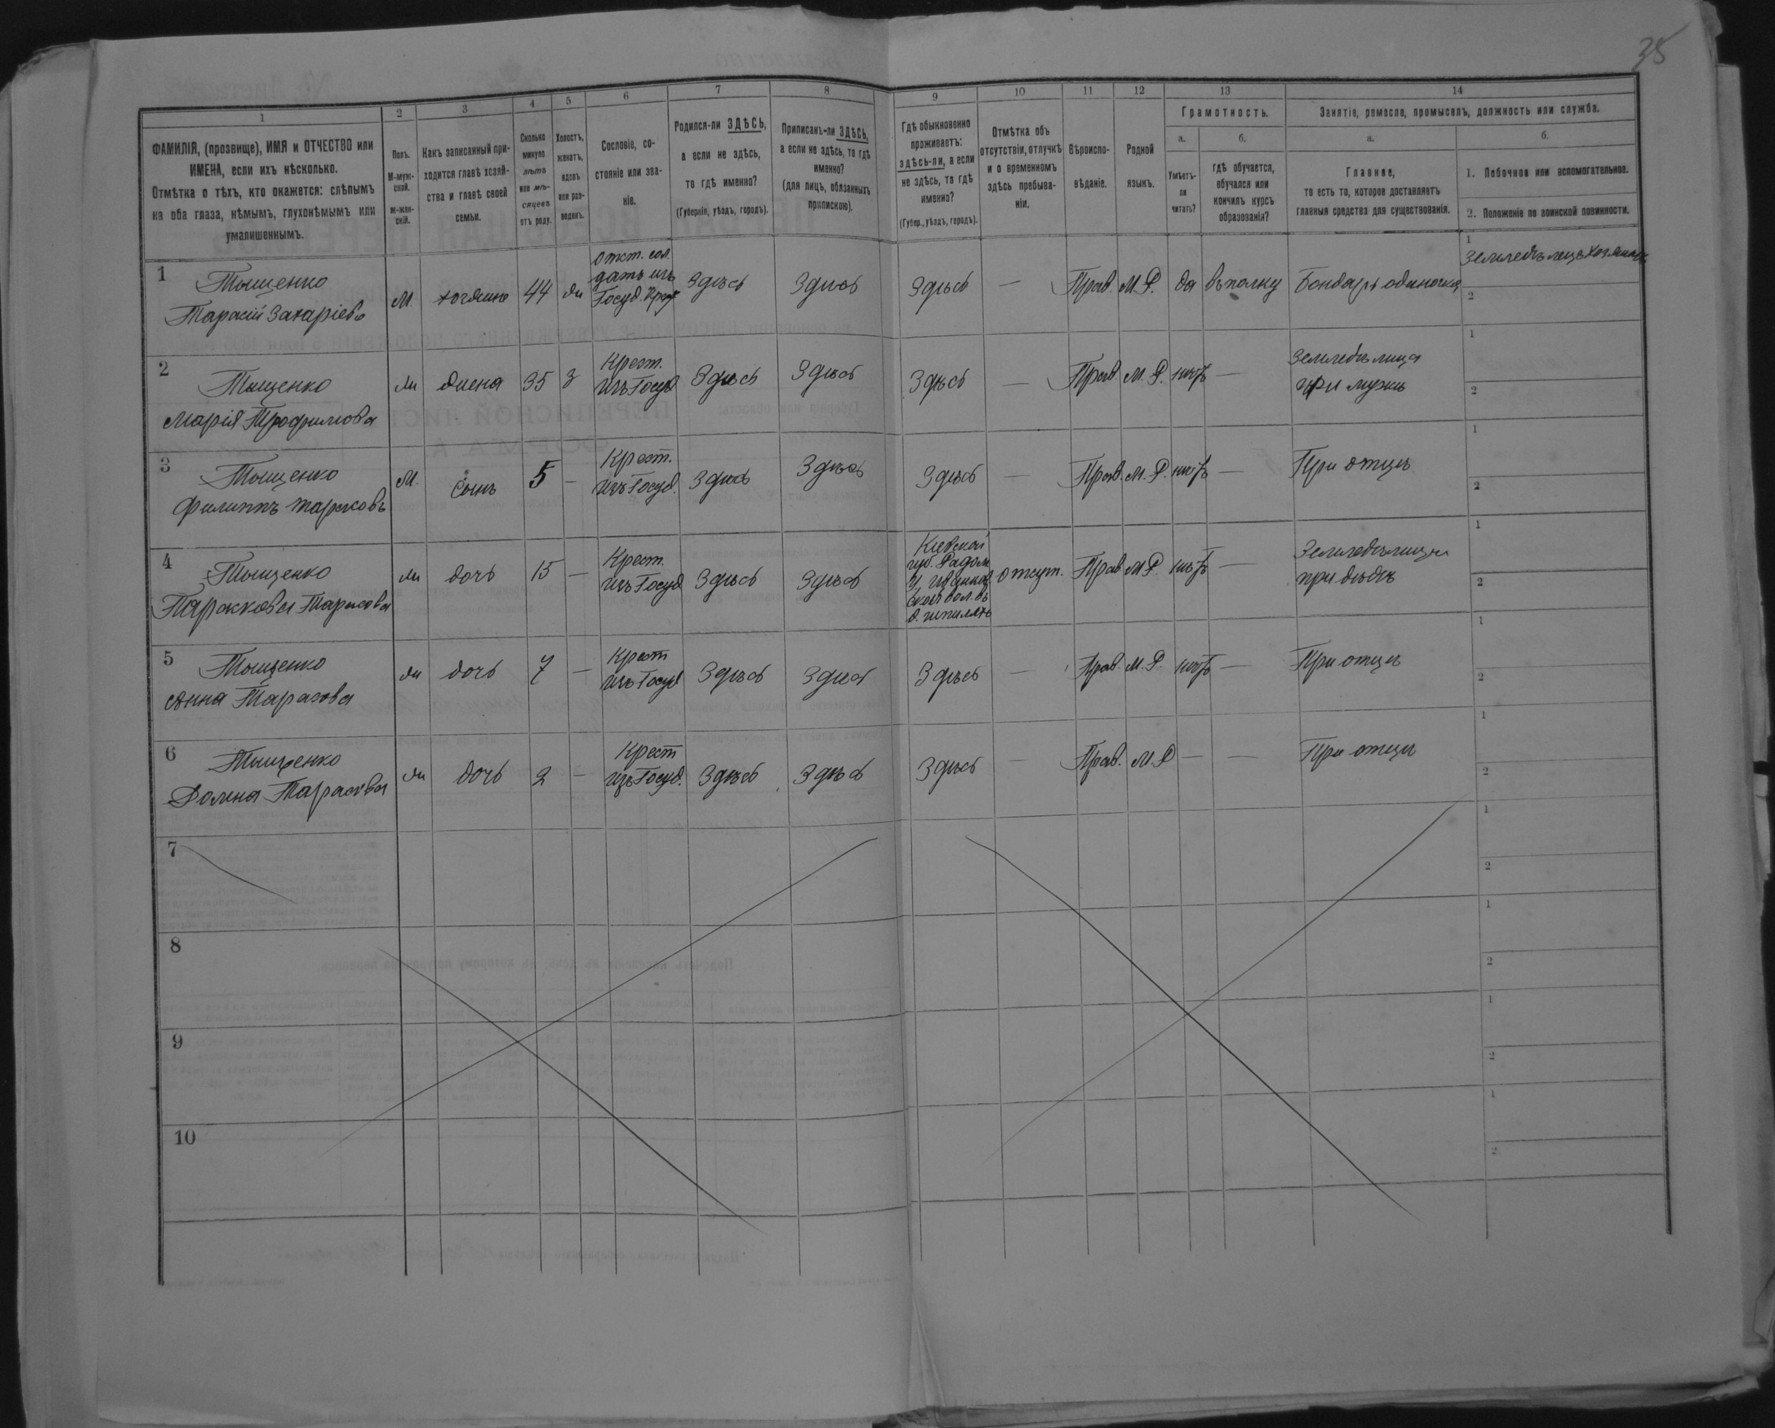 35
1 2 3 4 5 6 7 8 9 10 11 12 13 14
ФАМИЛІЯ, (прозвище), ИМЯ и ОТЧЕСТВО или
ИМЕНА, если ихъ нѣсколько.
Отмѣтка о тѣхъ, кто окажется: слѣпымъ
на оба глаза, нѣмымъ, глухонѣмымъ или
умалишеннымъ.
Полъ.
М-муж-
ской.
Ж-жен-
скій.
Какъ записанный при-
ходится главѣ хозяй-
ства и главѣ своей
семьи.
Сколько
минуло
лѣтъ
или мѣ-
сяцевъ
отъ роду.
Холостъ,
женатъ,
вдовъ
или раз-
веденъ.
Сословіе, со-
стояніе или зва-
ніе.
Родился-ли ЗДѢСЬ,
а если не здѣсь,
то гдѣ именно?
(Губернія, уѣздъ, городъ).
Приписанъ-ли ЗДѢСЬ,
а если не здѣсь, то гдѣ
именно?
(для лицъ, обязанныхъ
припискою).
Гдѣ обыкновенно
проживаетъ:
здѣсь-ли, а если
не здѣсь, то гдѣ
именно?
(Губер., уѣздъ, городъ).
Отмѣтка объ
отсутствіи, отлучкѣ
и о временномъ
здѣсь пребыва-
ніи.
Вѣроиспо-
вѣданіе.
Родной
языкъ.
Грамотность.
а.
Умѣетъ-
ли
читать?
б.
гдѣ обучается,
обучался или
кончилъ курсъ
образованія?
Занятіе, ремесло, промыселъ, должность или служба.
а.
Главное,
то есть то, которое доставляетъ
главныя средства для существованія.
б.
1. Побочное или вспомогательное.
2. Положеніе по воинской повинности.
1
Тыщенко
Тарасій Захаріевъ
М
хозяинъ
44
ж
отст. сол.
датъ изъ
Госуд. Крест
Здѣсь
Здѣсь
Здѣсь
—
Прав.
М. Р.
да
въ полку
Бондарь одиночка
1
Земледѣлецъ хозяинъ
2
2
Тыщенко
Марія Трофимова
ж
жена
35
з
Крест.
изъ Госуд
Здѣсь
Здѣсь
Здѣсь
—
Прав.
М. Р.
нѣтъ
—
Земледѣлица
при мужѣ
1
2
3
Тыщенко
Филиппъ Тарасовъ
М.
сынъ
5
—
Крест.
изъ Госуд.
Здѣсь
Здѣсь
Здѣсь
—
Прав.
М. Р.
нѣтъ
—
При отцѣ
1
2
4
Тыщенко
Параскова Тарасова
ж
дочь
15
—
Крест
изъ Госуд
Здѣсь
Здѣсь
Кіевской
губ. Радом.
отсут.
Прав
М. Р.
нѣтъ
—
Земледѣлица
при дѣдѣ
1
2
5
Тыщенко
Анна Тарасова
ж
дочь
7
—
Крест
изъ Госуд
Здѣсь
Здѣсь
Здѣсь
—
Прав.
М. Р.
нѣтъ
—
При отцѣ
1
2
6
Тыщенко
Домна Тарасова
ж
дочь
2
—
Крест
изъ Госуд.
Здѣсь
Здѣсь
Здѣсь
—
Прав.
М. Р
—
—
При отцѣ
1
2
7
1
2
8
1
2
9
1
2
10
1
2